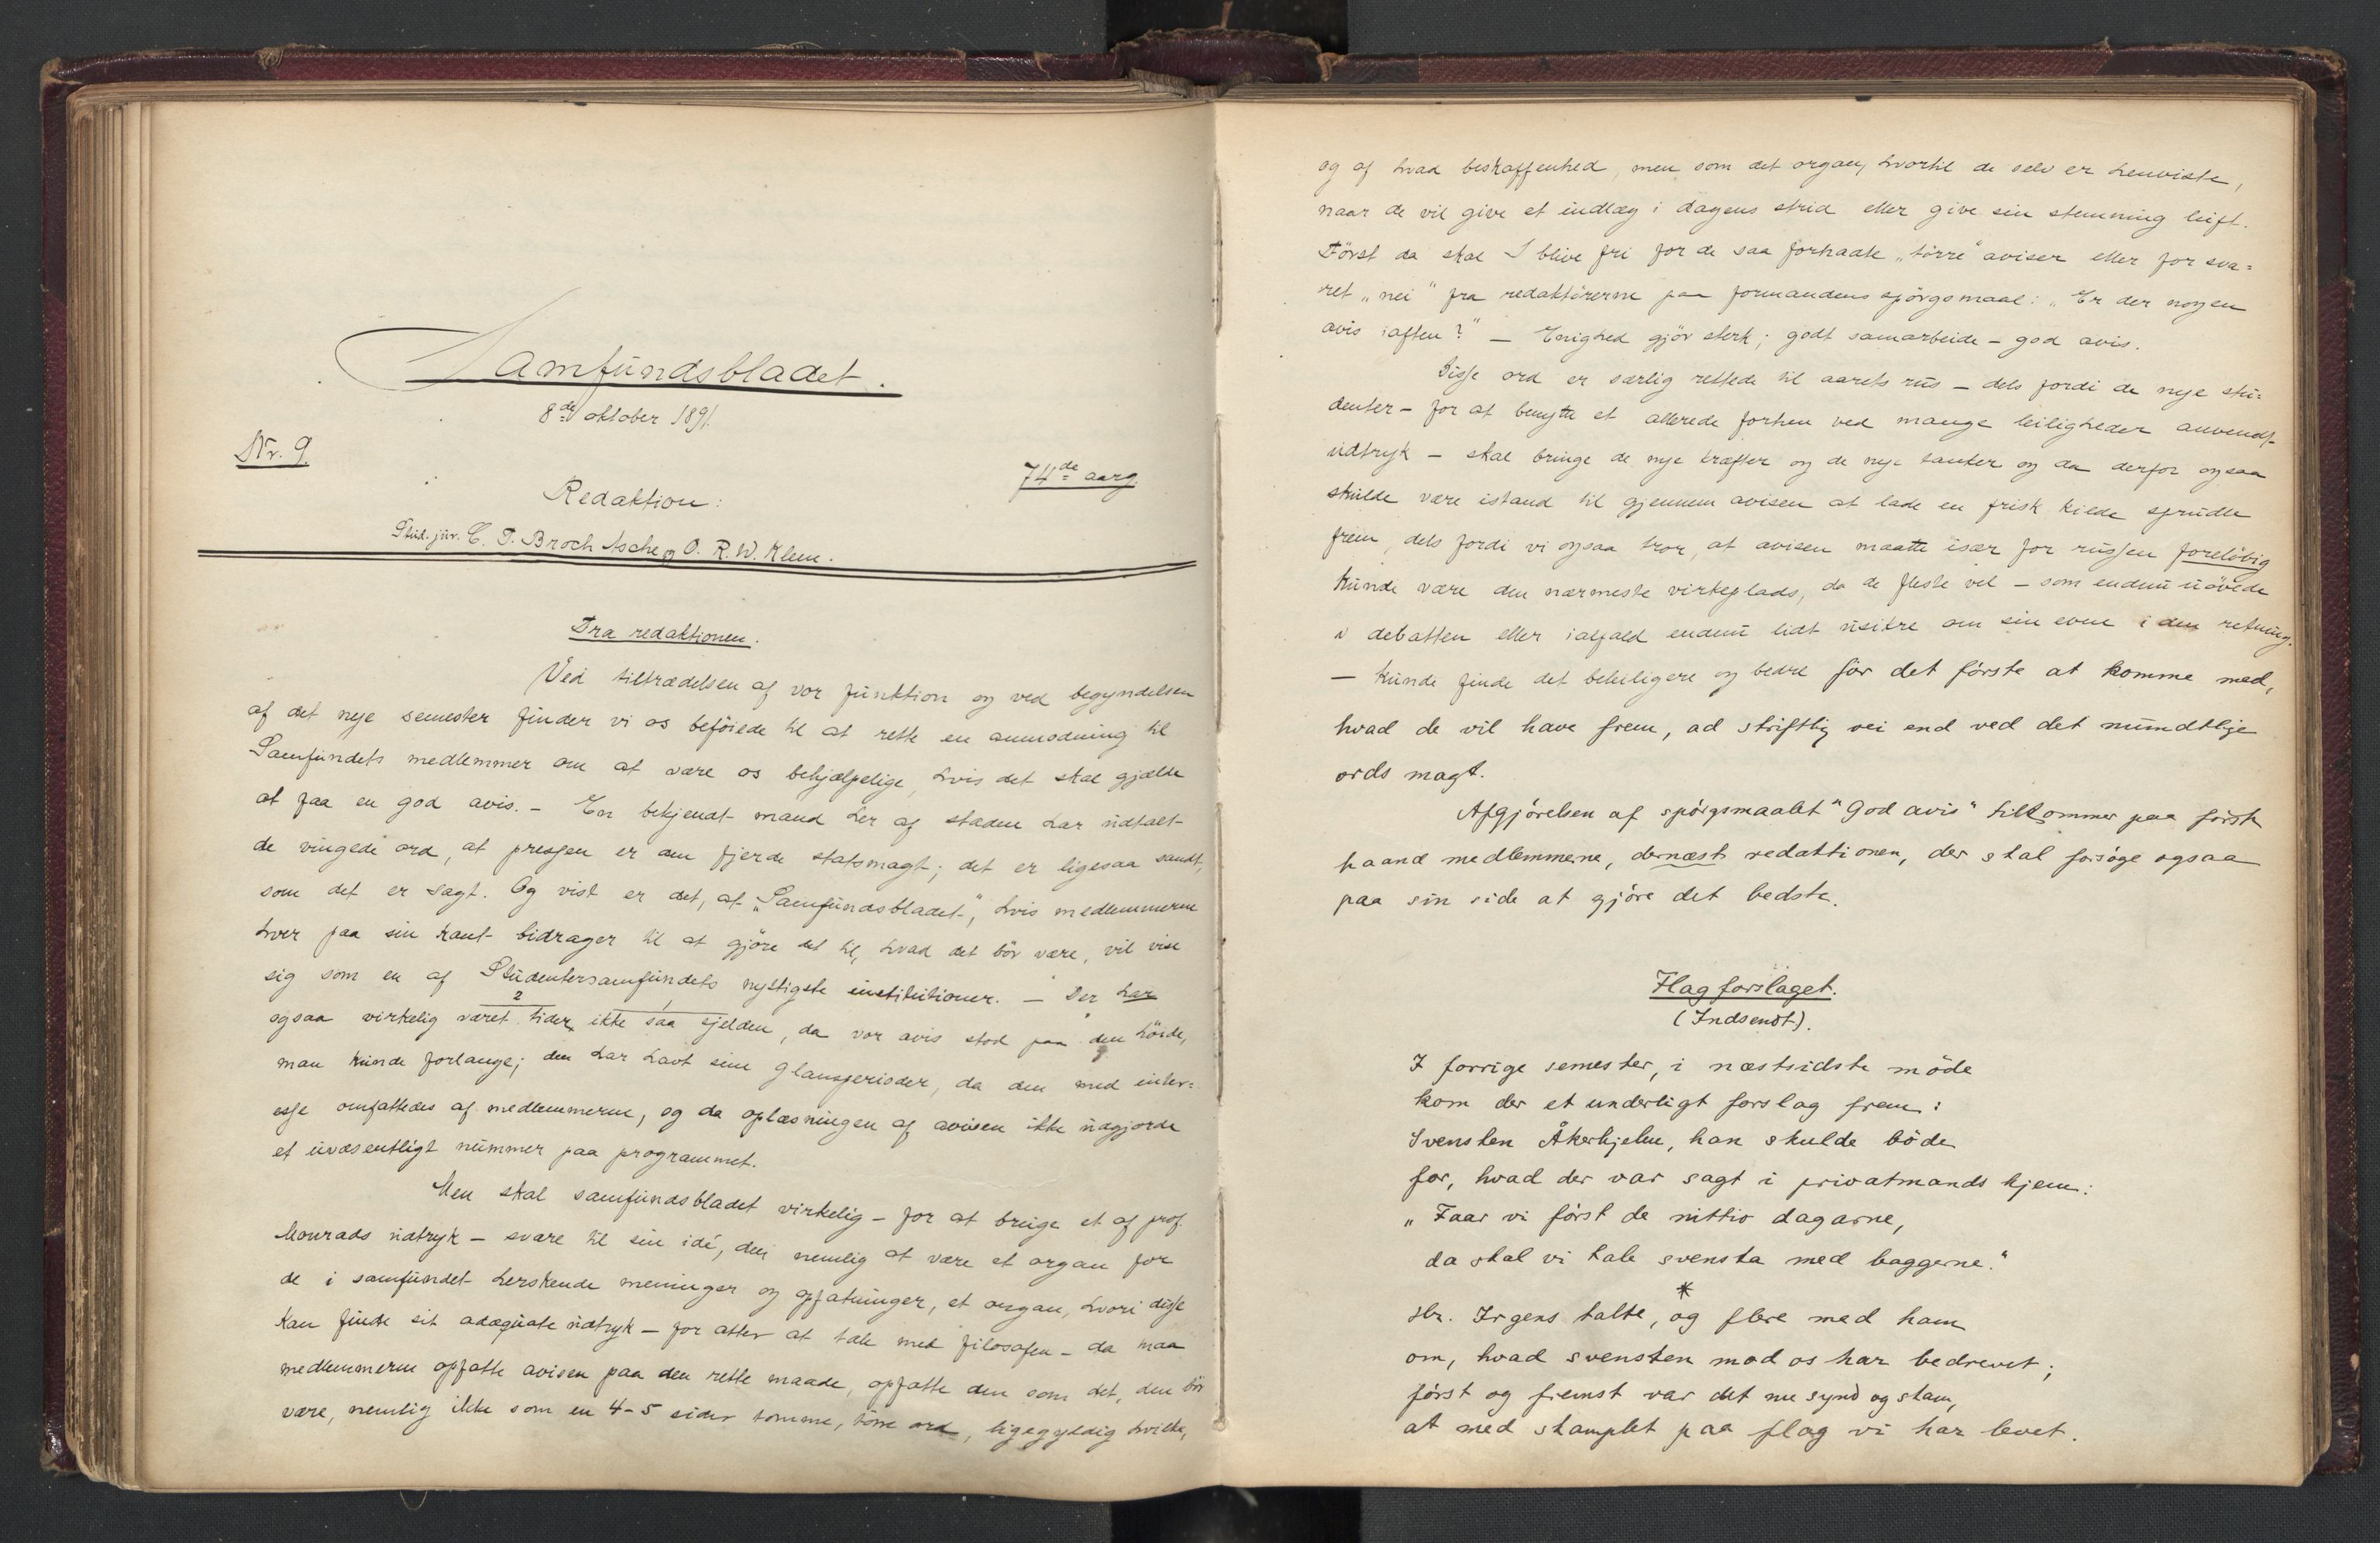 Samfundsbladet.
8de oktober 1891.
Nr. 9.
74de aarg.
Redaktion:
Stud. jur. C. T. Broch Asche og O. R. W. Klem.
Fra redaktionen.
Ved tiltrædelsen af vor funktion og ved begyndelsen
af det nye semester finder vi os beføiede til at rette en anmodning til
Samfundets medlemmer om at være os behjælpelige, hvis det skal gjælde
at faa en god avis. – En bekjendt mand her af staden har udtalt
de vingede ord, at pressen er den fjerde statsmagt; det er ligesaa sandt,
som det er sagt. Og vist er det, at „Samfundsbladet", hvis medlemmerne
hver paa sin kant bidrager til at gjøre det til, hvad det bør være, vil vise
sig som en af Studentersamfundets nyttigste institutioner. – Der har
ogsaa virkelig været tider, ikke saa sjelden, da vor avis stod paa den høide,
man kunde forlange; den har havt sine glansperioder, da den med inter=
esse omfattedes af medlemmerne, og da oplæsningen af avisen ikke udgjorde
et uvæsentligt nummer paa programmet.
Men skal samfundsbladet virkelig – for at bruge et af prof.
Monrads udtryk – svare til sin idé, den nemlig at være et organ for
de i samfundet herskende meninger og opfatninger, et organ, hvori disse
kan finde sit adæquate udtryk – for atter at tale med filosofen – da maa
medlemmerne opfatte avisen paa den rette maade, opfatte den som det, den bør
være, nemlig ikke som en 4-5 sider tomme, tørre ord, ligegyldig hvilke,
og af hvad beskaffenhed, men som det organ, hvortil de selv er henviste,
naar de vil give et indlæg i dagens strid eller give sin stemning luft.
Først da skal I blive fri for de saa forhadte „tørre" aviser eller for sva=
ret „nei" fra redaktørerne paa formandens spørgsmaal: „Er der nogen
avis iaften?" – Enighed gjør sterk; godt samarbeide – god avis.
Disse ord er særlig rettede til aarets rus – dels fordi de nye stu=
denter – for at benytte et allerede forhen ved mange leiligheder anvendt
udtryk – skal bringe de nye kræfter og de nye tanker og da derfor ogsaa
skulde være istand til gjennem avisen at lade en frisk kilde sprudle
frem, dels fordi vi ogsaa tror, at avisen maatte især for russen foreløbig
kunde være den nærmeste virkeplads, da de fleste vel – som endnu uøvede
i debatten eller ialfald endnu lidt usikre om sin evne i den retning.
– kunde finde det beleiligere og bedre for det første at komme med,
hvad de vil have frem, ad skriftlig vei end ved det mundtlige
ords magt.
Afgjørelsen af spørgsmaalet "God avis" tilkommer paa første
haand medlemmene, dernæst redaktionen, der skal forsøge ogsaa
paa sin side at gjøre det bedste.
Flagforslaget.
(Indsendt).
I forrige semester, i næstsidste møde
kom der et underligt forslag frem:
Svensken Åkerhjelm, han skulde bøde
for, hvad der var sagt i privatmands hjem:
„Faar vi først de nittio dagarne,
da skal vi tale svenska med baggerne."
*
Hr. Irgens talte, og flere med ham
om, hvad svensken mod os har bedrevet;
først og fremst var det nu synd og skam,
at med skamplet paa flag vi har levet.